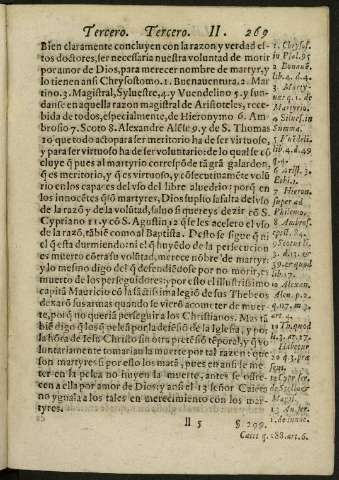 Tercero. Tercero. II. 269
Bien claramente concluyen con la razon y verdad es-
tos doctores, ser necessaria nuestra voluntad de morir
por amor de Dios, para merecer nombre de martyr, y
lo tienen ansi Chrysostomo. 1. Buenauentura. 2. Mar
tino. 3. Magistral, Syluestre, 4. y Vuendelino 5. y fun-
danse en aquella razon magistral de Aristoteles, rece-
bida de todos, especialmente, de Hieronymo 6. Am-
brosio 7. Scoto 8. Alexandre Alése 9. y de S. Thomas
10 que todo acto para ser meritorio ha de ser virtuoso,
y para ser virtuoso ha de ser volũtario: de lo qual se cõ
cluye q̃ pues al martyrio correspõde tã grã galardon,
q̃ es meritorio, y q̃ es virtuoso, y cõsecutiuamẽte volũ
rio en los capaces del vso del libre aluedrio: porq̃ en
los innocẽtes q̃ sõ martyres, Dios suplio la falta del vso
de la razõ y de la volũtad, saluo si quereys dezir cõ S.
Cypriano 11. y cõ S. Agustin 12 q̃ se les acelero el vso
de la razõ, tãbiẽ como al Baptista. Desto se sigue q̃ ni
el q̃ esta durmiendo: ni el q̃ huyẽdo de la persecucion
es muerto cõtra su volũtad, merece nõbre de martyr:
y lo mesmo digo del q̃ defendiẽdose por no morir, es
muerto de los perseguidores: y por esso el illustrissimo
capitã Mauricio cõ la sãctissima legiõ de sus Thebeos
dexarõ sus armas quando se vierõ acometer de muer-
te, porq̃ no queriã perseguir a los Christianos. Mas tã
biẽ digo q̃ los q̃ peleã por la defẽsiõ de la Iglesia, y por
la hõra de Iesu Christo sin otro pretẽsõ tẽporal, y q̃ vo
luntariamente tomarian la muerte por tal razon: que
son martyres si por esso los matã, pues en ansi se me
ter en la pelea no huyen la muerte, antes se offre-
cen a ella por amor de Dios: y ansi el 13 señor Caieta
no yguala a los tales en merecimiento con los mar-
tyres.
Ll 5 § 299.
1. Chrysos.
in Psal. 95
2 Bonauẽ.
lib. 4. d. 4.
3 Marty-
nus q. 1. de
Martyrio.
4 Siluest. in
Summa.
lib. 4. d. 49
q. 4.
6 Arist. 3.
Ethi. 1.
7 Hieron.
super ad
Philemo.
8 Ambros.
lib. 17.
10 Alexan.
Alen. p. 2.
art.
10 Th. quod
Caiet q. 288. art. 6.